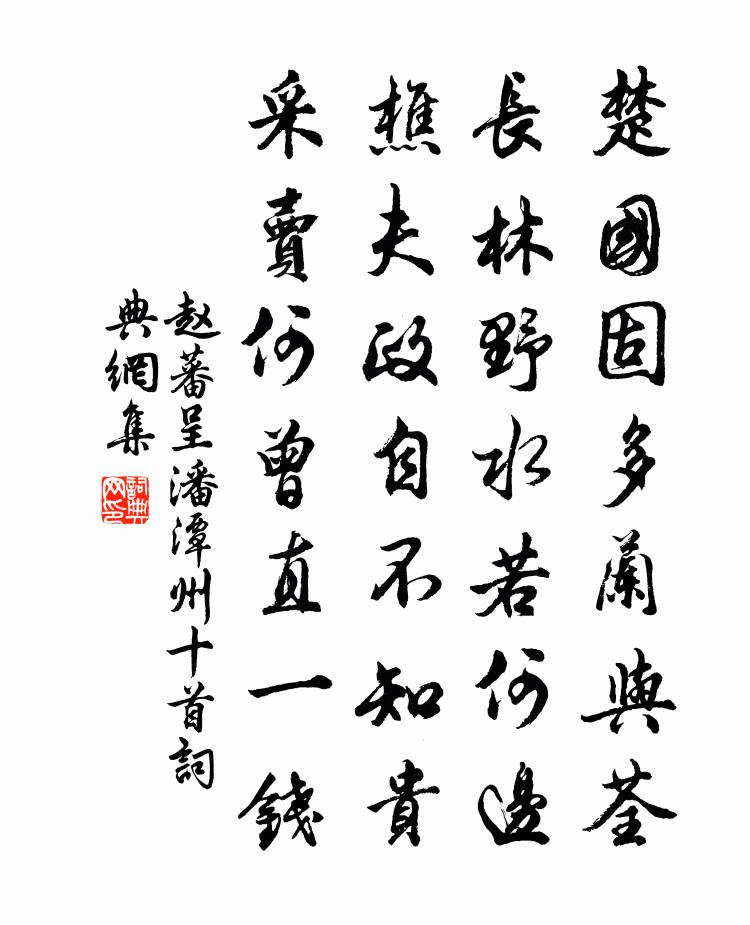 楚國固多蘭與荃
長林野水若何邊
樵夫政自不知貴
采賣何曾直一錢
赵蕃呈潘潭州十首詞
典網集
詞典網印